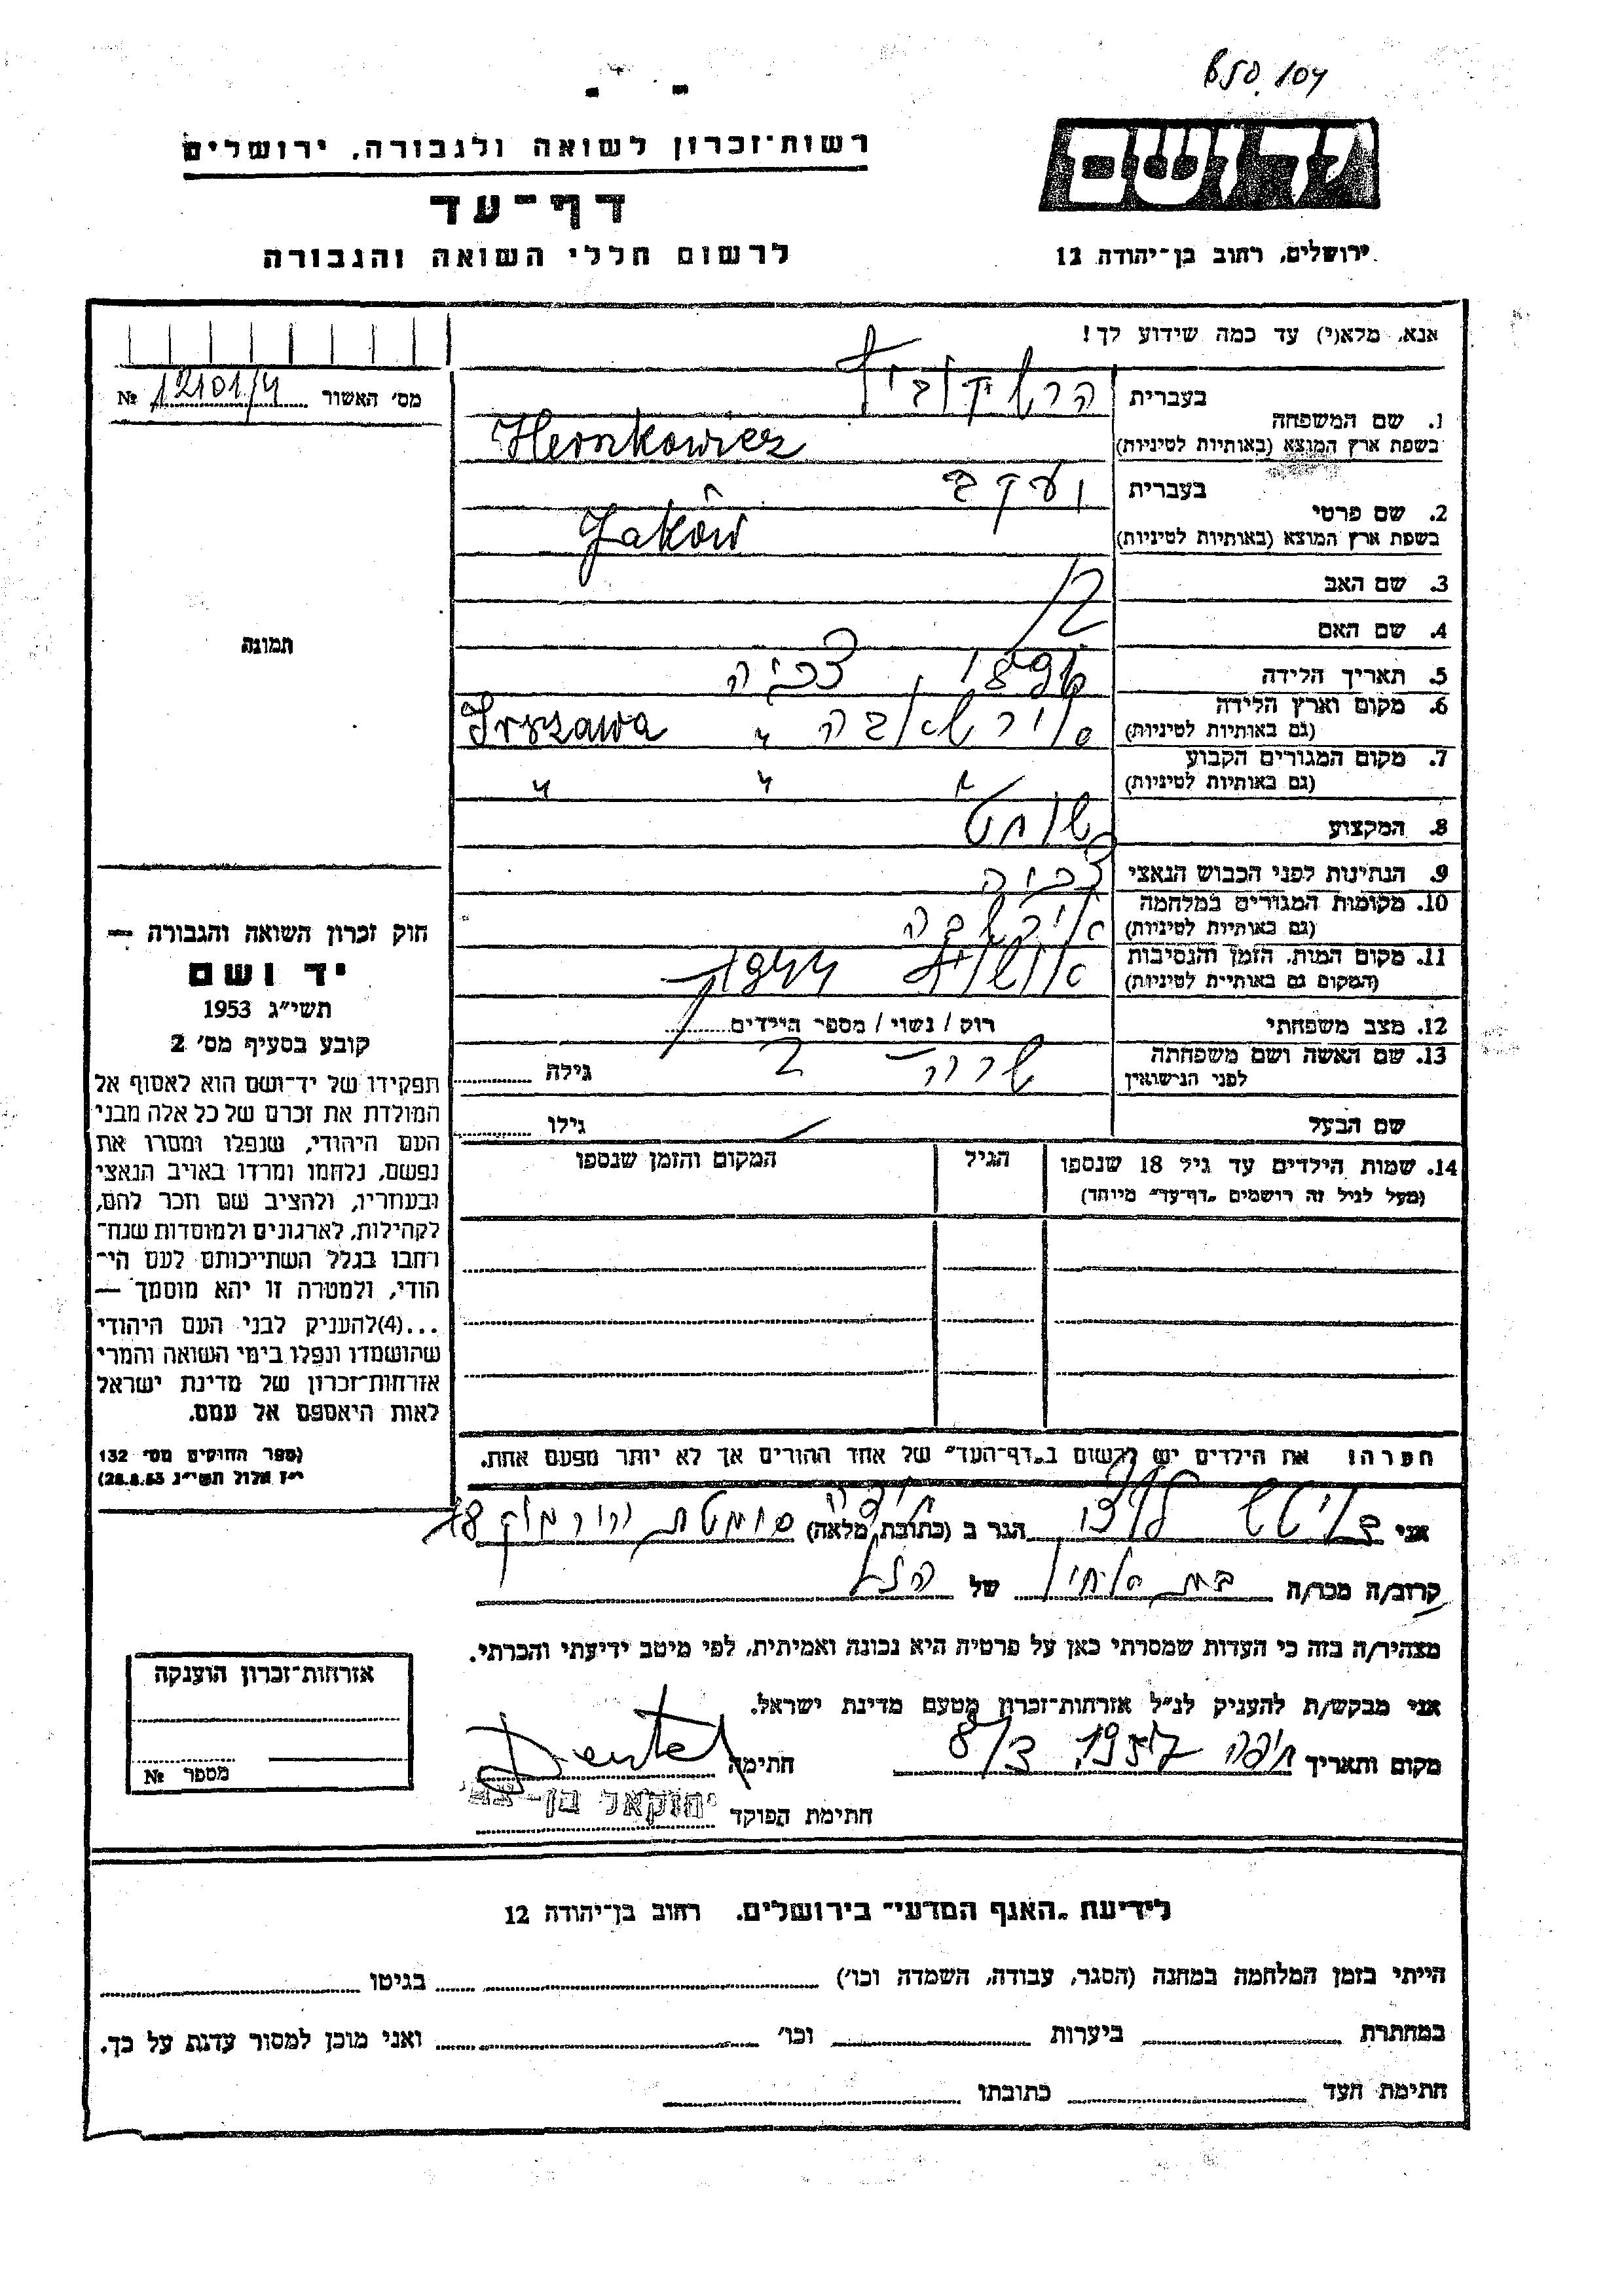 650.104
רשות־זכרון לשואה ולגבורה, ירושלים
דף־עד
לרשום חללי השואה והגבורה
יד ושם
ירושלים, רחוב בן־יהודה 12
אנא, מלא(י) עד כמה שידוע לך!
מס׳ האשור 12101/4 №
1. שם המשפחה
בעברית הרשקוביץ
בשפת ארץ המוצא (באותיות לטיניות) Herszkowicz
2. שם פרטי
בעברית יעקב
בשפת ארץ המוצא (באותיות לטיניות) Jakow
3. שם האב
4. שם האם
5. תאריך הלידה
6. מקום וארץ הלידה
(גם באותיות לטיניות) Irszawa
7. מקום המגורים הקבוע
(גם באותיות לטיניות) " " "
8. המקצוע שוחט
9. הנתינות לפני הכבוש הנאצי צכיה
10. מקומות המגורים במלחמה
(גם באותיות לטיניות)
11. מקום המות, הזמן והנסיבות
(המקום גם באותיות לטיניות) אושויץ 1944
12. מצב משפחתי רווק / נשוי / מספר הילדים
13. שם האשה ושם משפחתה
לפני הנישואין שרה
גילה
שם הבעל
גילו
14. שמות הילדים עד גיל 18 שנספו
(מעל לגיל זה רושמים „דף־עד״ מיוחד)
הגיל
המקום והזמן שנספו
תמונה
חוק זכרון השואה והגבורה —
יד ושם
תשי״ג 1953
קובע בסעיף מס׳ 2
תפקידו של יד־ושם הוא לאסוף אל
המולדת את זכרם של כל אלה מבני
העם היהודי, שנפלו ומסרו את
נפשם, נלחמו ומרדו באויב הנאצי
ובעוזריו, ולהציב שם וזכר להם,
לקהילות, לארגונים ולמוסדות שנח־
רבו בגלל השתייכותם לעם הי־
הודי, ולמטרה זו יהא מוסמך —
...(4)להעניק לבני העם היהודי
שהושמדו ונפלו בימי השואה והמרי
אזרחות־זכרון של מדינת ישראל
לאות היאספם אל עמם.
(ספר החוקים מס׳ 132
י״ז אלול תשי״ג 28.8.53)
הערה: את הילדים יש לרשום ב„דף־העד״ של אחד ההורים אך לא יותר מפעם אחת.
אני הגר ב (כתובת מלאה) חיפה 18
קרוב/ה מכר/ה של הנ״ל
מצהיר/ה בזה כי העדות שמסרתי כאן על פרטיה היא נכונה ואמיתית, לפי מיטב ידיעתי והכרתי.
אני מבקש/ת להעניק לנ״ל אזרחות־זכרון מטעם מדינת ישראל.
מקום ותאריך חיפה 1957 8/3 חתימה Deutel
חתימת הפוקד יחזקאל בן־
אזרחות־זכרון הוענקה
מספר №
לידיעת „האגף המדעי״ בירושלים, רחוב בן־יהודה 12
הייתי בזמן המלחמה במחנה (הסגר, עבודה, השמדה וכו׳) בגיטו
במחתרת ביערות וכו׳ ואני מוכן למסור עדות על כך.
חתימת העד כתובתו